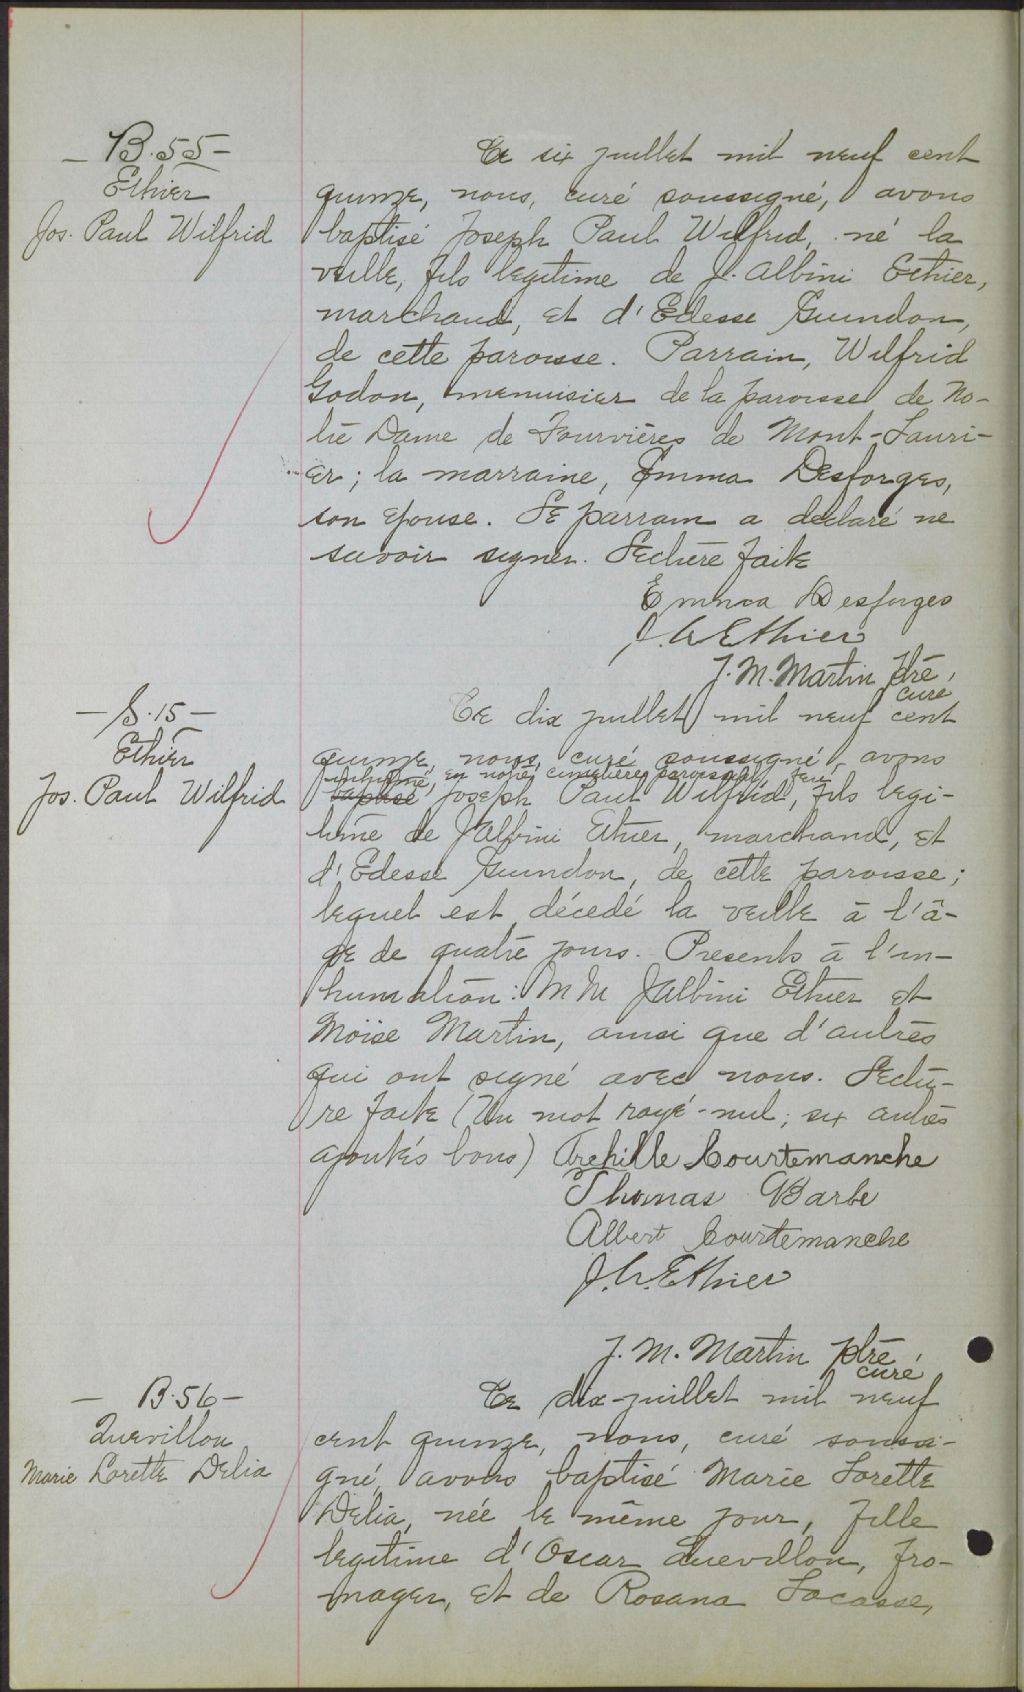 B.55
Ethier
Jos. Paul Wilfrid
Ce six juillet mil neuf cent
quinze, nous, curé soussigné, avons
baptisé Joseph Paul Wilfrid, né la
veille, fils legitime de J. Albini Ethier,
marchand, et d'Edesse Guindon,
de cette paroisse. Parrain, Wilfrid
Godon, menuisier de la paroisse de No-
tre Dame de Fourvières de Mont-Lauri-
er; la marraine, Emma Desforges,
son epouse. Le parrain a declaré ne
savoir signer. Lecture faite
Emma Desforges
J. A Ethier
J. M. Martin ptre,
curé
S.15
Ethier
Jos. Paul Wilfrid
Ce dix juillet mil neuf cent
quinze, nous, curé soussigné avons
inhumé, en notre cimetière paroissial, feu
baptisé Joseph Paul Wilfrid, fils legi-
time de J Albini Ethier, marchand, et
d'Edesse Guindon, de cette paroisse;
lequel est décedé la veille à l'â-
ge de quatre jours. Presents à l'in-
humation: MM J Albini Ethier et
Moïse Martin, ainsi que d'autres
qui ont signé avec nous. Lectu-
re faite (Un mot rayé-nul; six autres
ajoutés bons) Archille Courtemanche
Thomas Barbe
Albert Courtemanche
J. A. Ethier
J. M. Martin ptre,
curé
B.56
Quevillon
Marie Lorette Delia
Ce dix-juillet mil neuf
cent quinze, nous, curé soussi-
gné, avons baptisé Marie Lorette
Delia, née le même jour, fille
legitime d'Oscar Quevillon, fro-
mager, et de Rosana Lacasse,